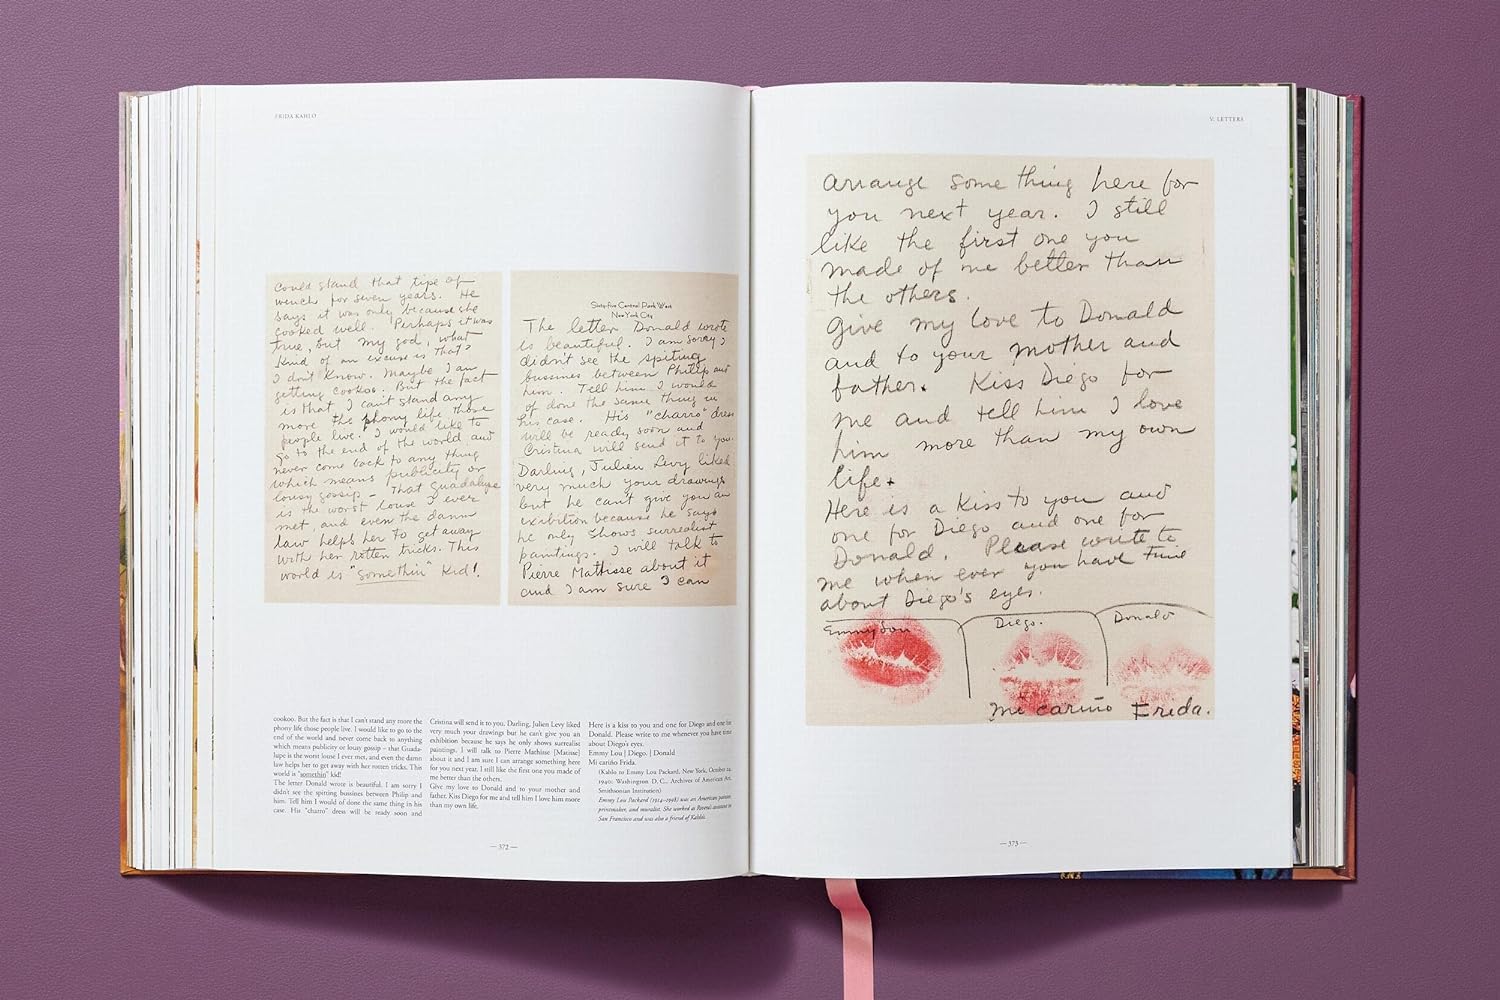 FRIDA KAHLO
could stand that tipe of
wench for seven years. He
says it was only because she
cooked well. Perhaps it was
true, but my god, what
kind of an excuse is that?
I don't Know. Maybe I am
getting cookoo. But the fact
is that I can't stand any
more the phony life those
people live. I would like to
go to the end of the world and
never come back to any thing
which means publicity or
lousy gossip – That Guadalupe
is the worst louse I ever
met, and even the damn
law helps her to get away
with her rotten tricks. This
world is "somethin" Kid!
Sixty-five Central Park West
New York City
The letter Donald wrote
is beautiful. I am sorry I
didn't see the spiting
bussines between Philip and
him. Tell him I would
of done the same thing in
his case. His "charro" dress
will be ready soon and
Cristina will send it to you.
Darling, Julien Levy liked
very much your drawings
but he can't give you an
exibition because he says
he only shows surrealist
paintings. I will talk to
Pierre Mathisse about it
and I am sure I can
cookoo. But the fact is that I can't stand any more the
phony life those people live. I would like to go to the
end of the world and never come back to anything
which means publicity or lousy gossip – that Guada-
lupe is the worst louse I ever met, and even the damn
law helps her to get away with her rotten tricks. This
world is "somethin" kid!
The letter Donald wrote is beautiful. I am sorry I
didn't see the spitting bussines between Philip and
him. Tell him I would of done the same thing in his
case. His "charro" dress will be ready soon and
Cristina will send it to you. Darling, Julien Levy liked
very much your drawings but he can't give you an
exhibition because he says he only shows surrealist
paintings. I will talk to Pierre Mathisse [Matisse]
about it and I am sure I can arrange something here
for you next year. I still like the first one you made of
me better than the others.
Give my love to Donald and to your mother and
father. Kiss Diego for me and tell him I love him more
than my own life.
Here is a kiss to you and one for Diego and one for
Donald. Please write to me whenever you have time
about Diego's eyes.
Emmy Lou | Diego. | Donald
Mi cariño Frida.
(Kahlo to Emmy Lou Packard, New York, October 24,
1940; Washington D. C., Archives of American Art,
Smithsonian Institution)
Emmy Lou Packard (1914–1998) was an American painter,
printmaker, and muralist. She worked as Rivera's assistant in
San Francisco and was also a friend of Kahlo's.
— 372 —
V. LETTERS
arrange some thing here for
you next year. I still
like the first one you
made of me better than
the others.
Give my love to Donald
and to your mother and
father. Kiss Diego for
me and tell him I love
him more than my own
life.
Here is a Kiss to you and
one for Diego and one for
Donald. Please write to
me when ever you have time
about Diego's eyes.
Emmy Lou
Diego.
Donald
Mi cariño Frida.
— 373 —